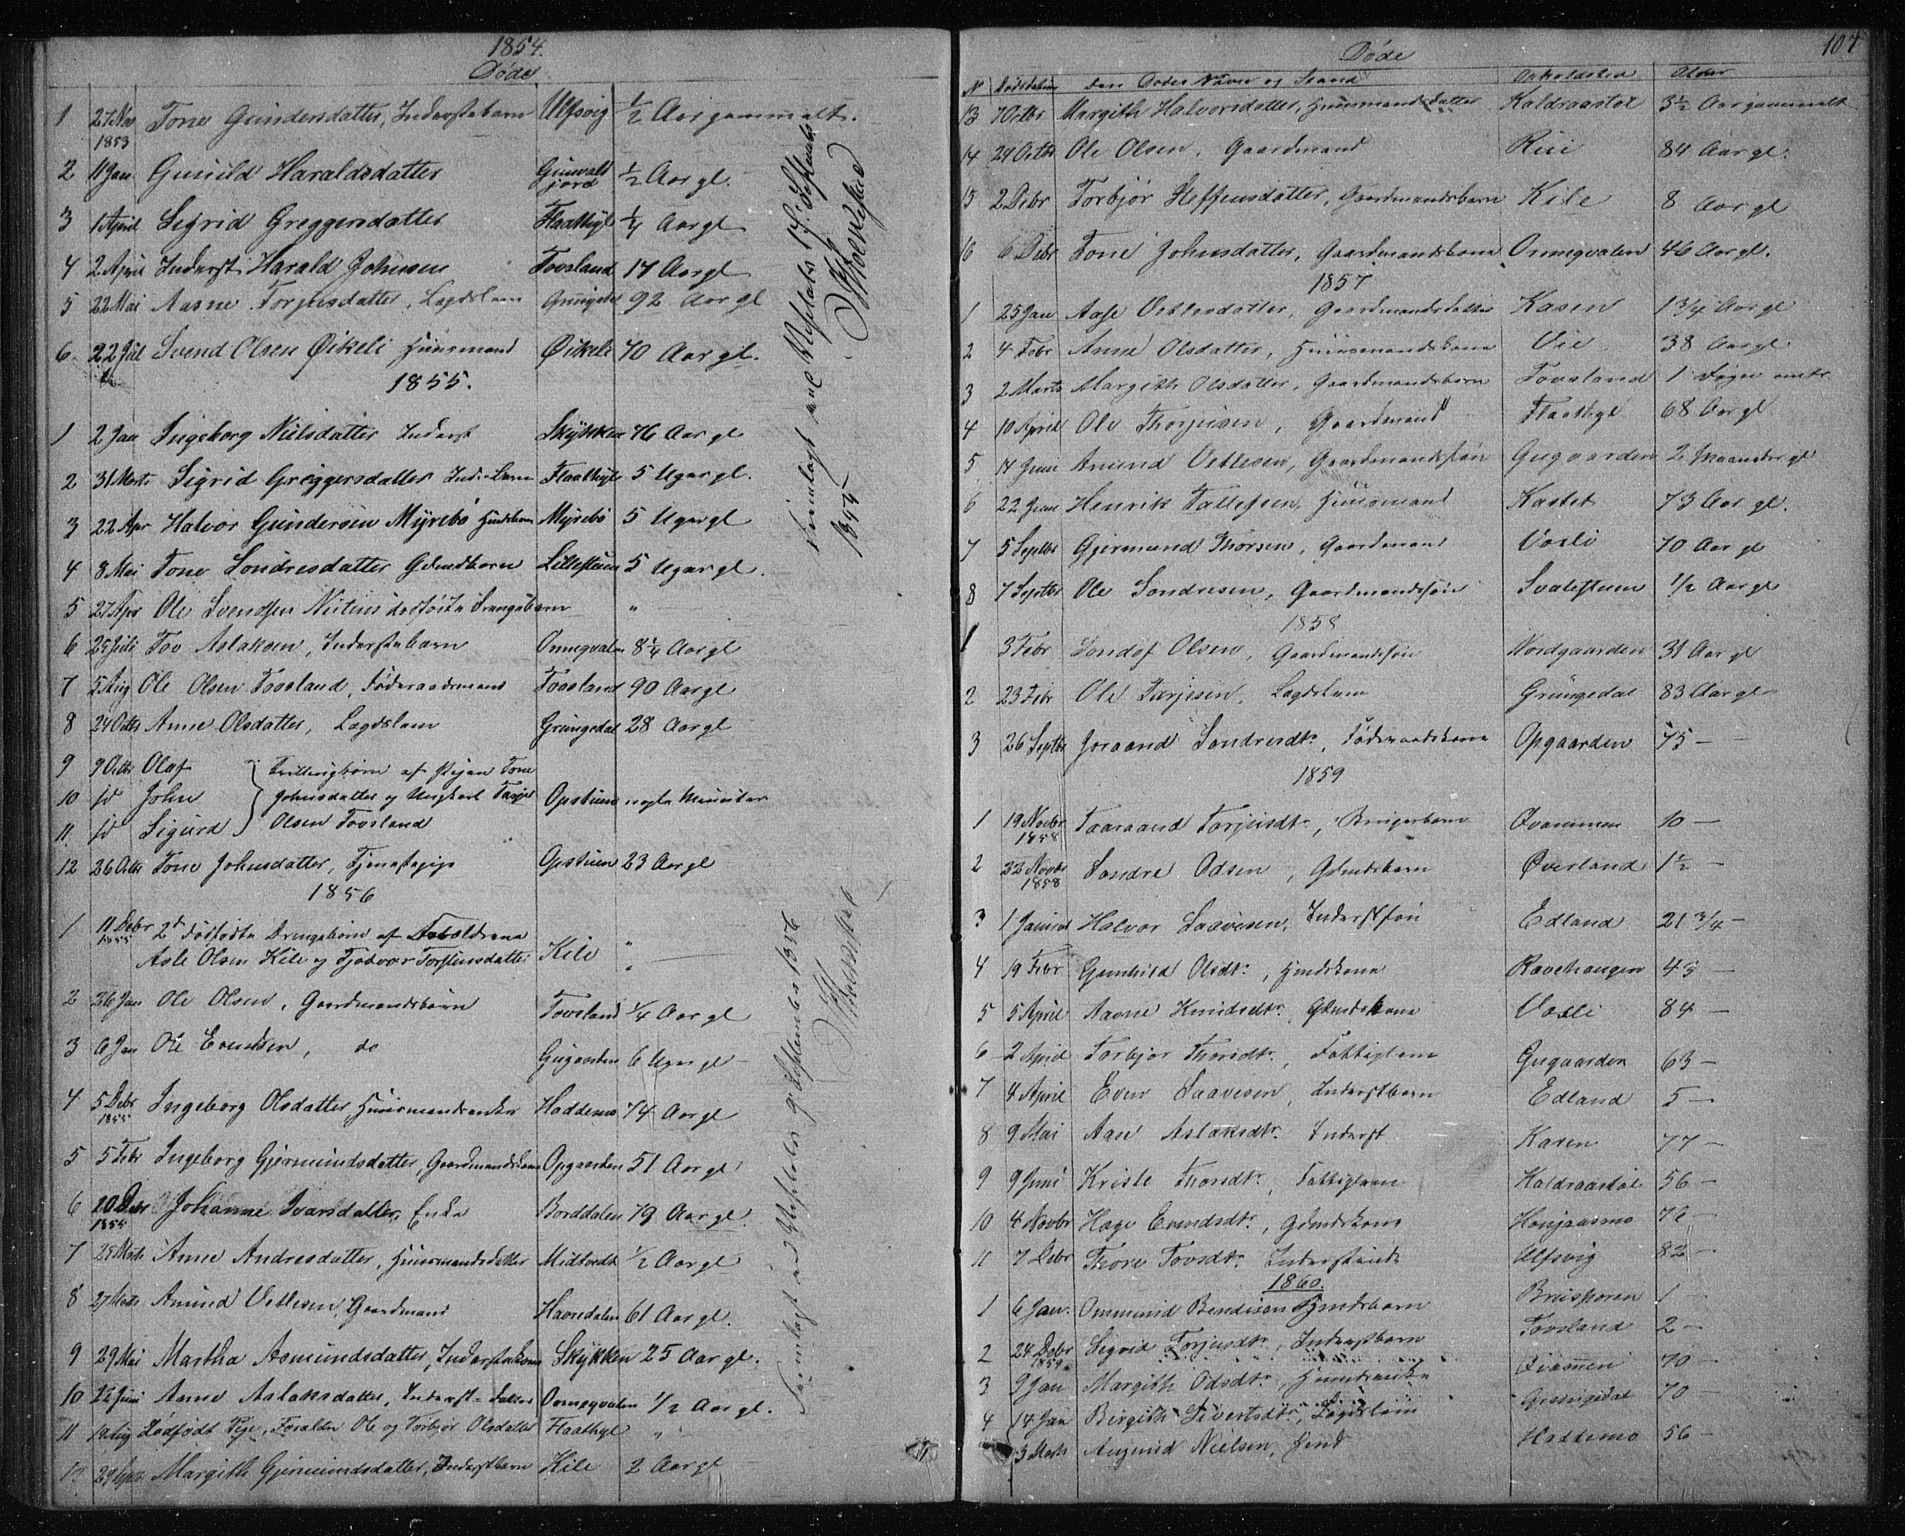 1854.
Døde
1 27 Nov 1853 Tone Gundersdatter, Inderstebarn Ulfsvig 1/2 Aar gammelt.
2 11 Jan Gunild Haraldsdatter 1/2 Aar gl.
3 1 April Sigrid Greggersdatter Flaathyl 1/4 Aar gl
4 2 April Inderst Harald Johnsen Tovsland 17 Aar gl
5 22 Mai Aasne Torjusdatter, Lagdslem 92 Aar gl
6. 22 Jul Svend Olsen Øikeli Huusmand Øikeli 70 Aar gl.
1855.
1 2 Jan Ingeborg Nielsdatter Inderst Skykken 76 Aar gl
2 31 Marts Sigrid Greggersdatter Inds. Barn Flaathyle 5 Uger gl.
3 22 Apr Halvor Gundersen Myrebø Myrebø 5 Uger gl
4 8 Mai Tone Sondresdatter Gdmdbarn Lillestuen 5 Uger gl.
5 27 Apr Ole Svendsen dødfødte Drengebarn "
6 25 Juli Tov Aslaksen, Inderstebarn Onneqvalen 8 1/4 Aar gl
7 5 Aug Ole Olsen Tovsland, Føderaadsmand Tovsland 90 Aar gl
8 24 Octb Anne Olsdatter, Lagdslem Grungedal 28 Aar gl
9 9 Octb Olaf } Trillingbørn af Pigen Tone
10 id John } Johnsdatter og Ungkarl Tarjei Opstuen nogle Minuter
11. id Sigurd } Olsen Tovsland
12 26 Octb Tone Johnsdatter, Tjenestepige Opstuen 23 Aar gl
1856
1 11 Debr 1855 2de dødfødte Drengebørn af Forældrene
Asle Olsen Kile og Tjodvor Torstensdatter Kile "
2 26 Jan Ole Olsen, Gaardmandsbarn Tovsland 1/4 Aar gl
3 6 Jan Ole Evensen, do Gugaarden 6 Uger gl
4 5 Debr 1855 Ingeborg Olsdatter, Huusmandsenke Haddemo 74 Aar gl
5 5 Febr Ingeborg Gjermundsdatter, Gaardmandskone Opgaarden 51 Aar gl
6 20 Debr Johanne Ivarsdatter, Enke Borddalen 79 Aar gl.
7 25 Marts Anne Andresdatter, Huusmandsdatter Midtvedt 1/2 Aar gl
8 27 Marts Amund Vetlesen, Gaardmand Havndalen 61 Aar gl.
9 29 Mai Martha Asmundsdatter, Inderstekone Skykken 25 Aar gl.
10 12 Juni Anne Aslaksdatter, Inderst-datter Onneqvalen 1/2 Aar gl.
11 Dødfødt Pige, Foræld. Ole og Torbjør Olsdatter Flaathyl "
12 29 Margith Gjermundsdatter, Inderstbarn Kile 2 Aar gl
Fremlagt ved Visitats 17. September 1855
Fremlagt ved Visitats 9. September 1856
104
Døde
N Dødsdatum Den Dødes Navn og Stand Opholdsted Alder
13 7 Octbr Margith Halvorsdatter, Huusmandsdatter Haldraastøl 3 1/2 Aar gammelt
14 24 Octb Ole Olsen, Gaardmand Rui 84 Aar gl.
15 2 Debr Torbjør Steffensdatter, Gaardmandsbarn Kile 8 Aar gl
16 6 Debr Tone Johnsdatter, Gaardmandskone Onneqvalen 46 Aar gl.
1857
1 25 Jan Aase Vetlesdatter, Gaardmandsdatter Kasen 1 3/4 Aar gl
2 4 Febr Anne Olsdatter, Huusmandskone Vie 38 Aar gl
3 2 Marts Margith Olsdatter, Gaardmandsbarn Tovsland 1 Døgn
4 10 April Ole Thorjusen, Gaardmand Flaathyl 68 Aar gl
5 14 Juni Amund Vetlesen, Gaardmandssøn Gugaarden 2 Maaneder gl
6 22 Juni Henrik Tallefsen, Huusmand Kastet 73 Aar gl.
7 5 Septbr Gjermund Thorsen, Gaardmand Vasli 70 Aar gl
8 7 Septbr Ole Sondresen, Gaardmandssøn Svalestuen 1/2 Aar gl
1858
1 3 Febr Sondof Olsen, Gaardmandssøn Nordgaarden 31 Aar gl
2 23 Febr Ole Tarjesen, Lagdslem Grungedal 83 Aar gl
3 26 Septbr Joraand Sondresdtr, Føderaadskone Opgaarden 75 —
1859
1 19 Novbr 1858 Taaraand Torjusdtr, Brugerbarn Qvammen 10 —
2 22 Novbr 1858 Sondre Odsen, Gdmdsbarn Øverland 1 1/2 —
3 1 Januar Halvor Saavesen, Inderstsøn Edland 21 3/4 —
4 19 Febr Gunhild Olsdtr, Hmdskone Ravehaugen 43 —
5 5 April Aasne Knudsdtr, Gdmdskone Vasli 84 —
6 2 April Torbjør Thorsdtr, Fattiglem Gugaarden 63 —
7 4 April Even Saavesen, Inderstbarn Edland 5 —
8 9 Mai Aase Aslaksdtr, Inderst Kasen 77 —
9 9 Juni Kriste Thorsdtr, Fattiglem Haldraastøl 56 —
10 4 Novbr Hage Evensdtr, Gdmdskone 72 —
11 7 Debr Thore Tovsdtr Inderstenke Ulfsvig 82 —
1860.
1 6 Jan. Ommund Bendixen Hmdsbarn 1 —
2 24 Debr 1859 Sigrid Torjusdtr, Inderstbarn Tovsland 2 —
3 9 Jan Margith Odsdtr, Huusmdsenke 70 —
4 14 Jan Birgith Sivertsdtr, Lagdslem Grungedal 70 —
5 Marts Nielsen, Haddemo 56 —